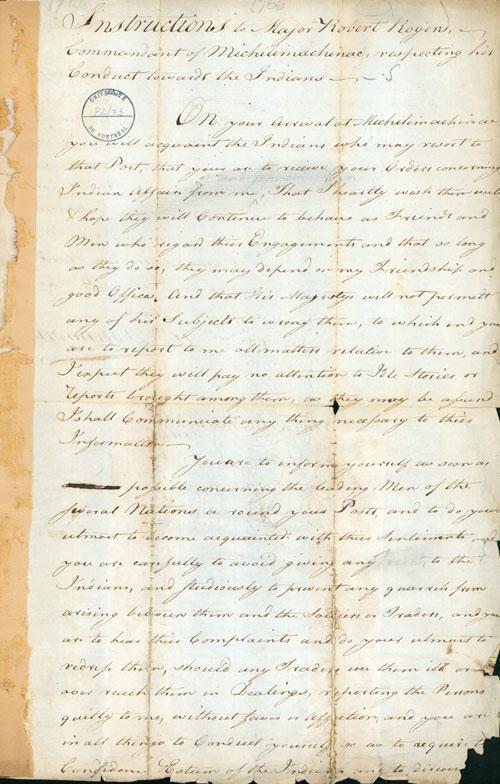 Instructions to Major Robert Rogers,
Commandant of Michilimackinac, respecting his
Conduct towards the Indians
UNIVERSITÉ
DE MONTRÉAL
On your arrival at Michilimackinac
you will acquaint the Indians who may resort to
that Post, that your are to receive your Orders concerning
Indian Affairs from me, That I heartly wish them well
& hope they will Continue to behave as Friends and
Men who regard their Engagements and that so long
as they do so, they may depend on my Friendship and
good Offices. And that His Majestys will not permitt
any of his Subjects to wrong them, to which end you
are to report to me all matters relative to them, and
I expect they will pay no attention to Idle Stories or
Reports brought among them, as they may be assured
I shall Communicate any thing necessary to their
Information
You are to inform yourself as soon as
possible concerning the leading Men of the
several Nations a round your Post, and to do your
utmost to become acquainted with their Sentiments
you are carefully to avoid giving any to the
Indians, and studiously to prevent any quarrels from
arising between them and the Soldiers or Traders, and you
are to hear their Complaints and do your utmost to
redress them, should any Traders use them ill or
over reach them in Dealings, reporting the Persons
guilty to me, without favor or Affection, and you are
in all things to Conduct yourself so as to acquire
Confidence Esteem of the Indians and to discover